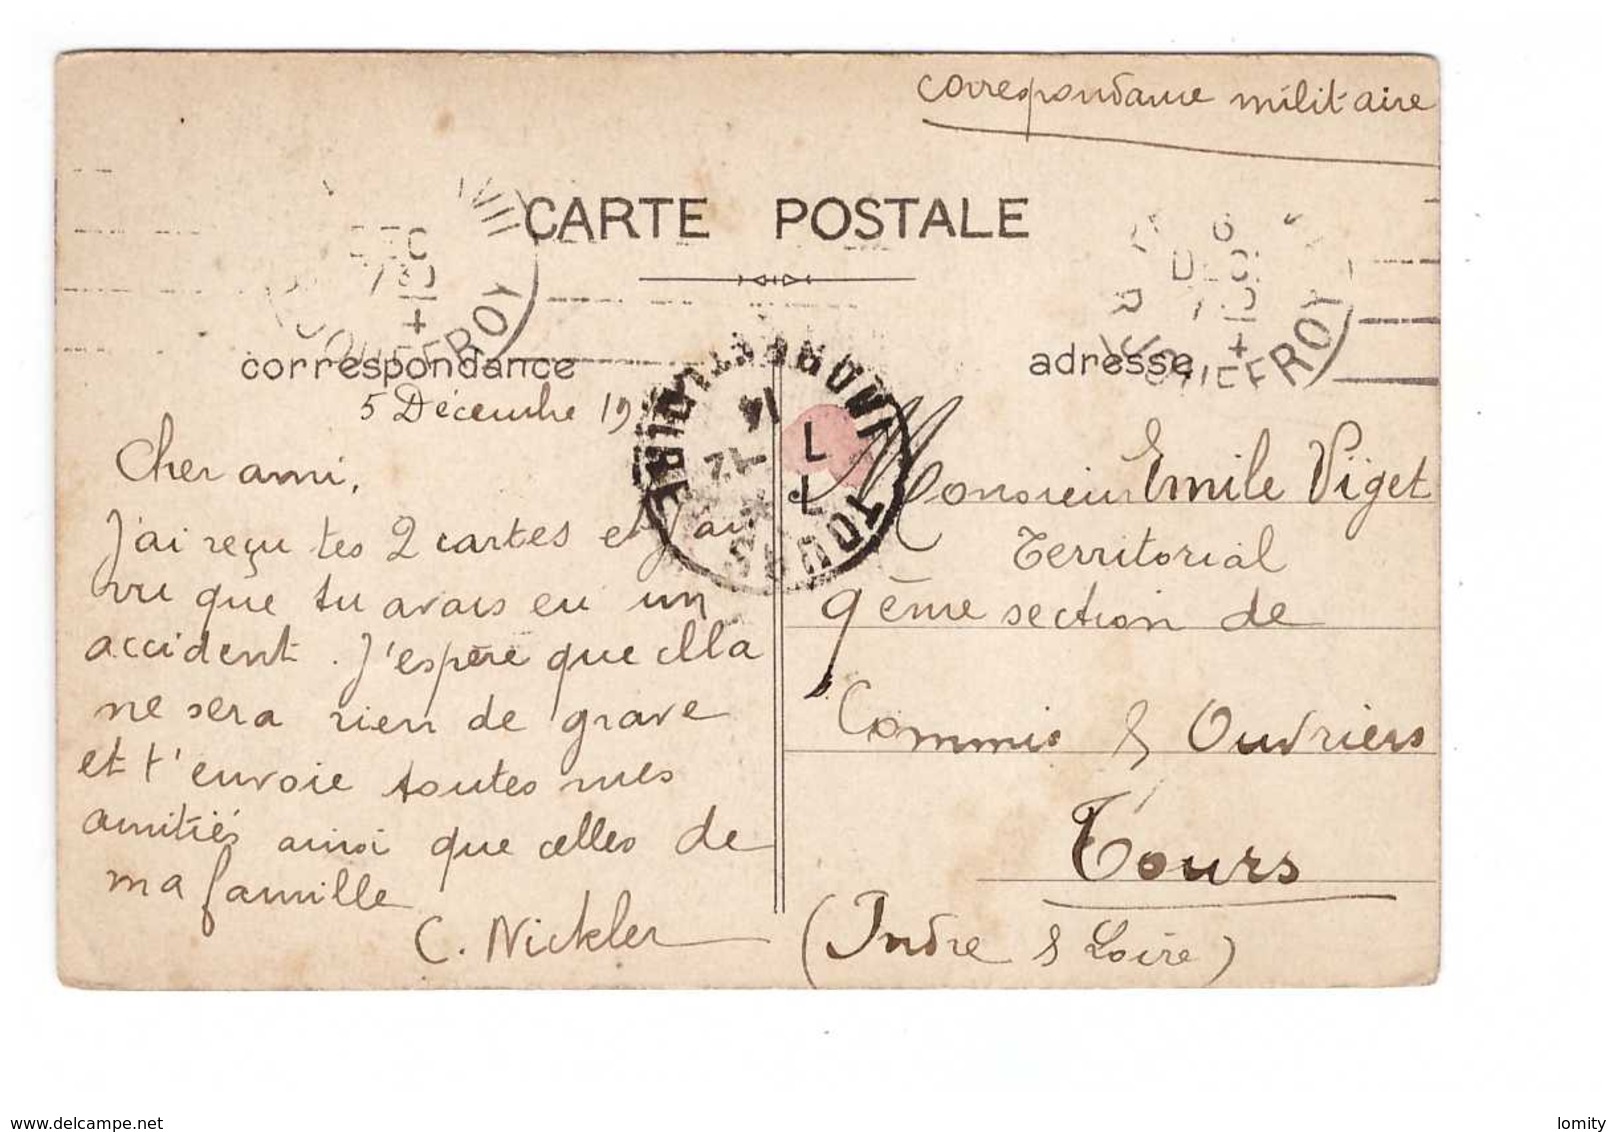 correspondance militaire
CARTE POSTALE
correspondance
adresse
DEC
+
JOUFFROY
6
DEC
+
JOUFFROY
TOURS
INDRE ET LOIRE
7 12
14
5 Décembre 19
Cher ami,
J'ai reçu tes 2 cartes et j'ai
vu que tu avais eu un
accident. J'espère que ella
ne sera rien de grave
et t'envoie toutes mes
amitiés ainsi que celles de
ma famille
C. Nickler
Monsieur Emile Viget
Territorial
9ème section de
Commis & Ouvriers
Tours
(Indre & Loire)
www.delcampe.net
lomity